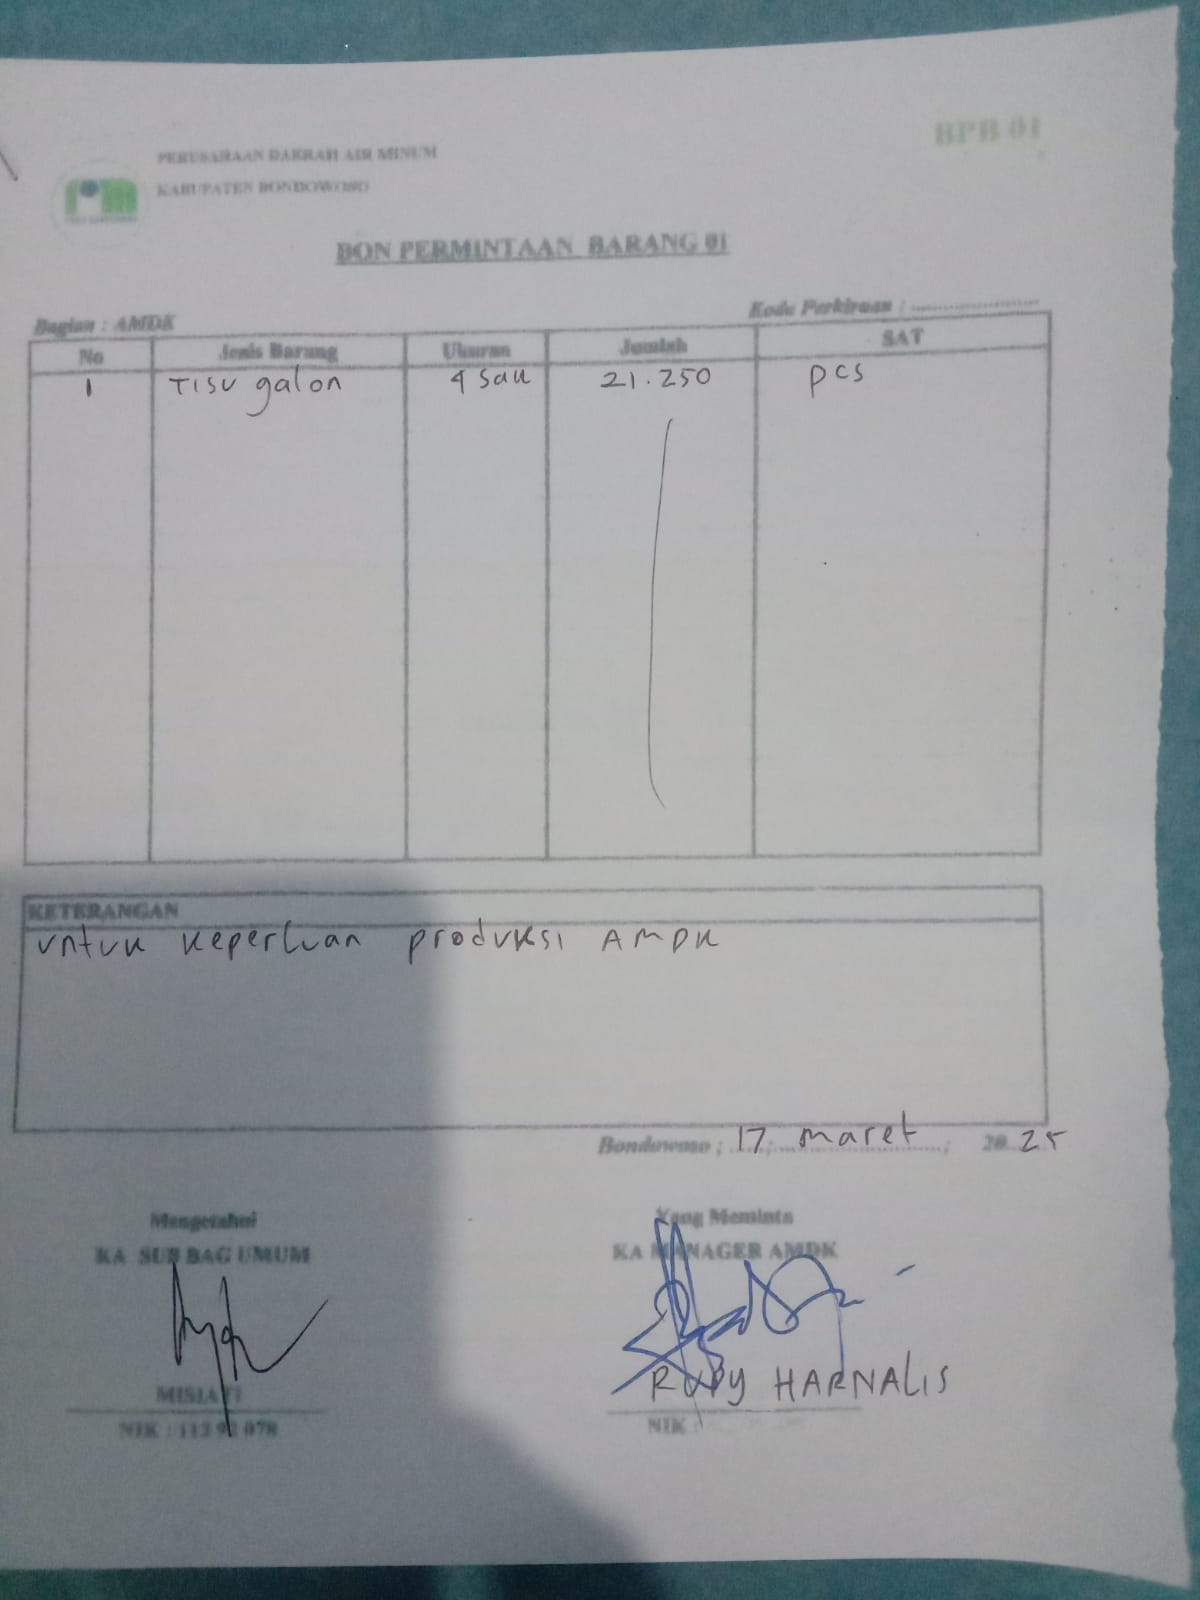 BPB 01
PERUSAHAAN DAERAH AIR MINUM
KABUPATEN BONDOWOSO
BON PERMINTAAN BARANG 01
Bagian : AMDK
Kode Perkiraan : ........................
No Jenis Barang Ukuran Jumlah SAT
1 Tisu galon 4 sak 21.250 pcs
KETERANGAN
untuk keperluan produksi AMDK
Bondowoso ; 17 maret ; 20 25
Mengetahui
KA SUB BAG UMUM
Yang Meminta
KA MANAGER AMDK
MISIATI
NIK : 113 9 078
RUDY HARNALIS
NIK :